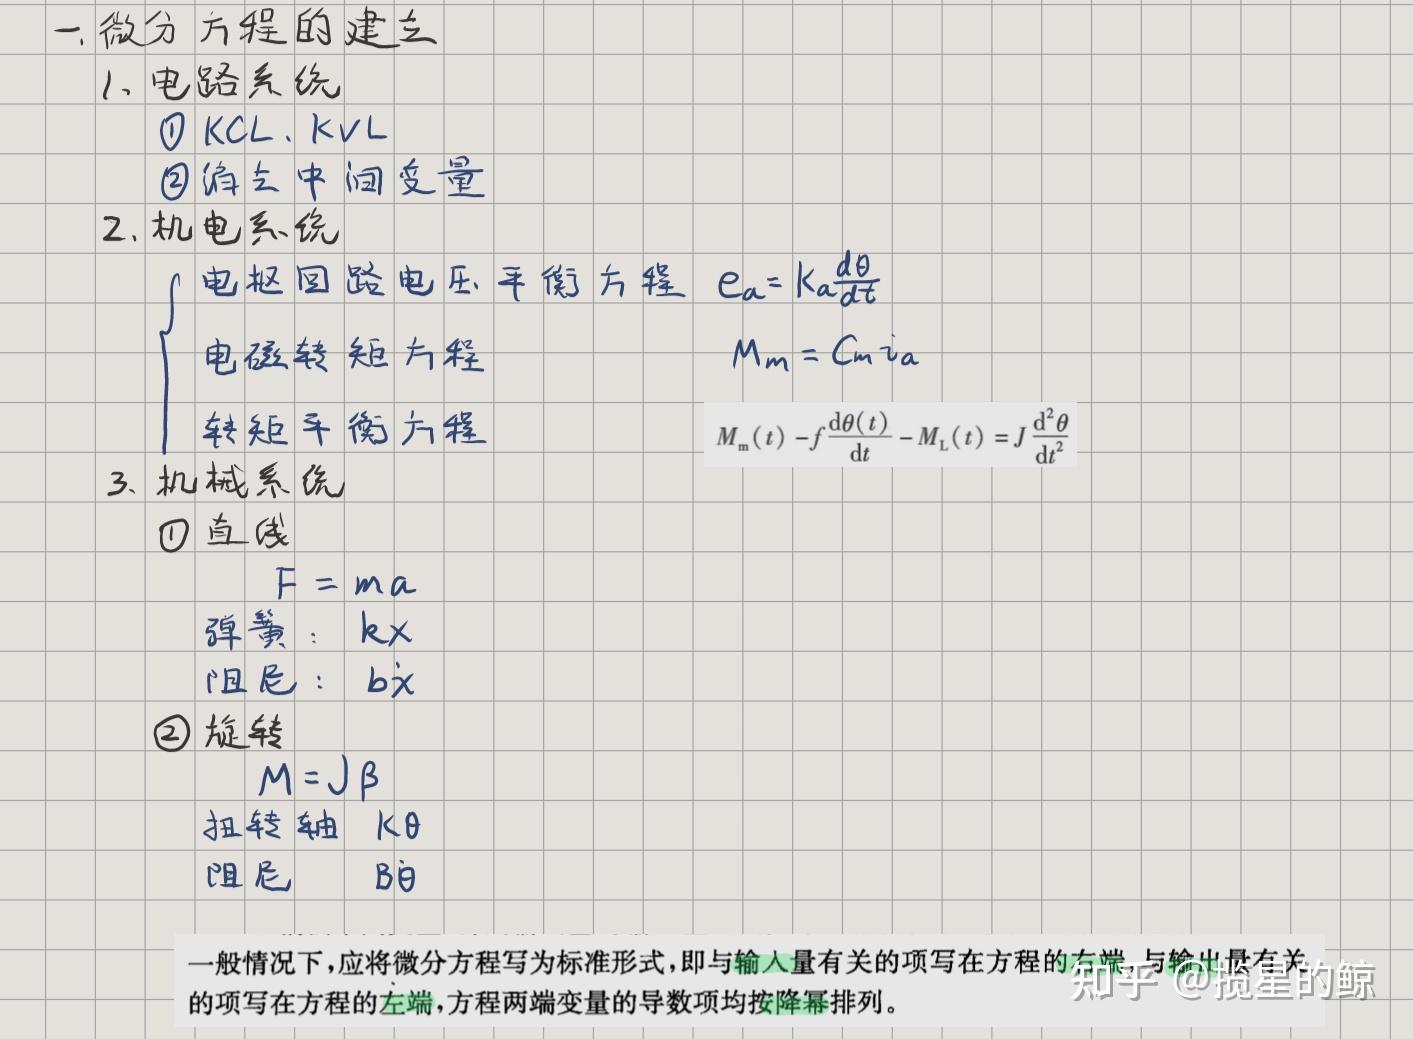 一、微分方程的建立
1、电路系统
① KCL、KVL
② 消去中间变量
2、机电系统
电枢回路电压平衡方程 eₐ = Kₐ dθ/dt
电磁转矩方程 Mₘ = Cₘ iₐ
转矩平衡方程 Mₘ(t) - f dθ(t)/dt - M_L(t) = J d²θ/dt²
3、机械系统
① 直线
F = ma
弹簧: kx
阻尼: bẋ
② 旋转
M = Jβ
扭转轴 Kθ
阻尼 Bθ̇
一般情况下,应将微分方程写为标准形式,即与输入量有关的项写在方程的右端,与输出量有关
的项写在方程的左端,方程两端变量的导数项均按降幂排列。
知乎 @揽星的鲸